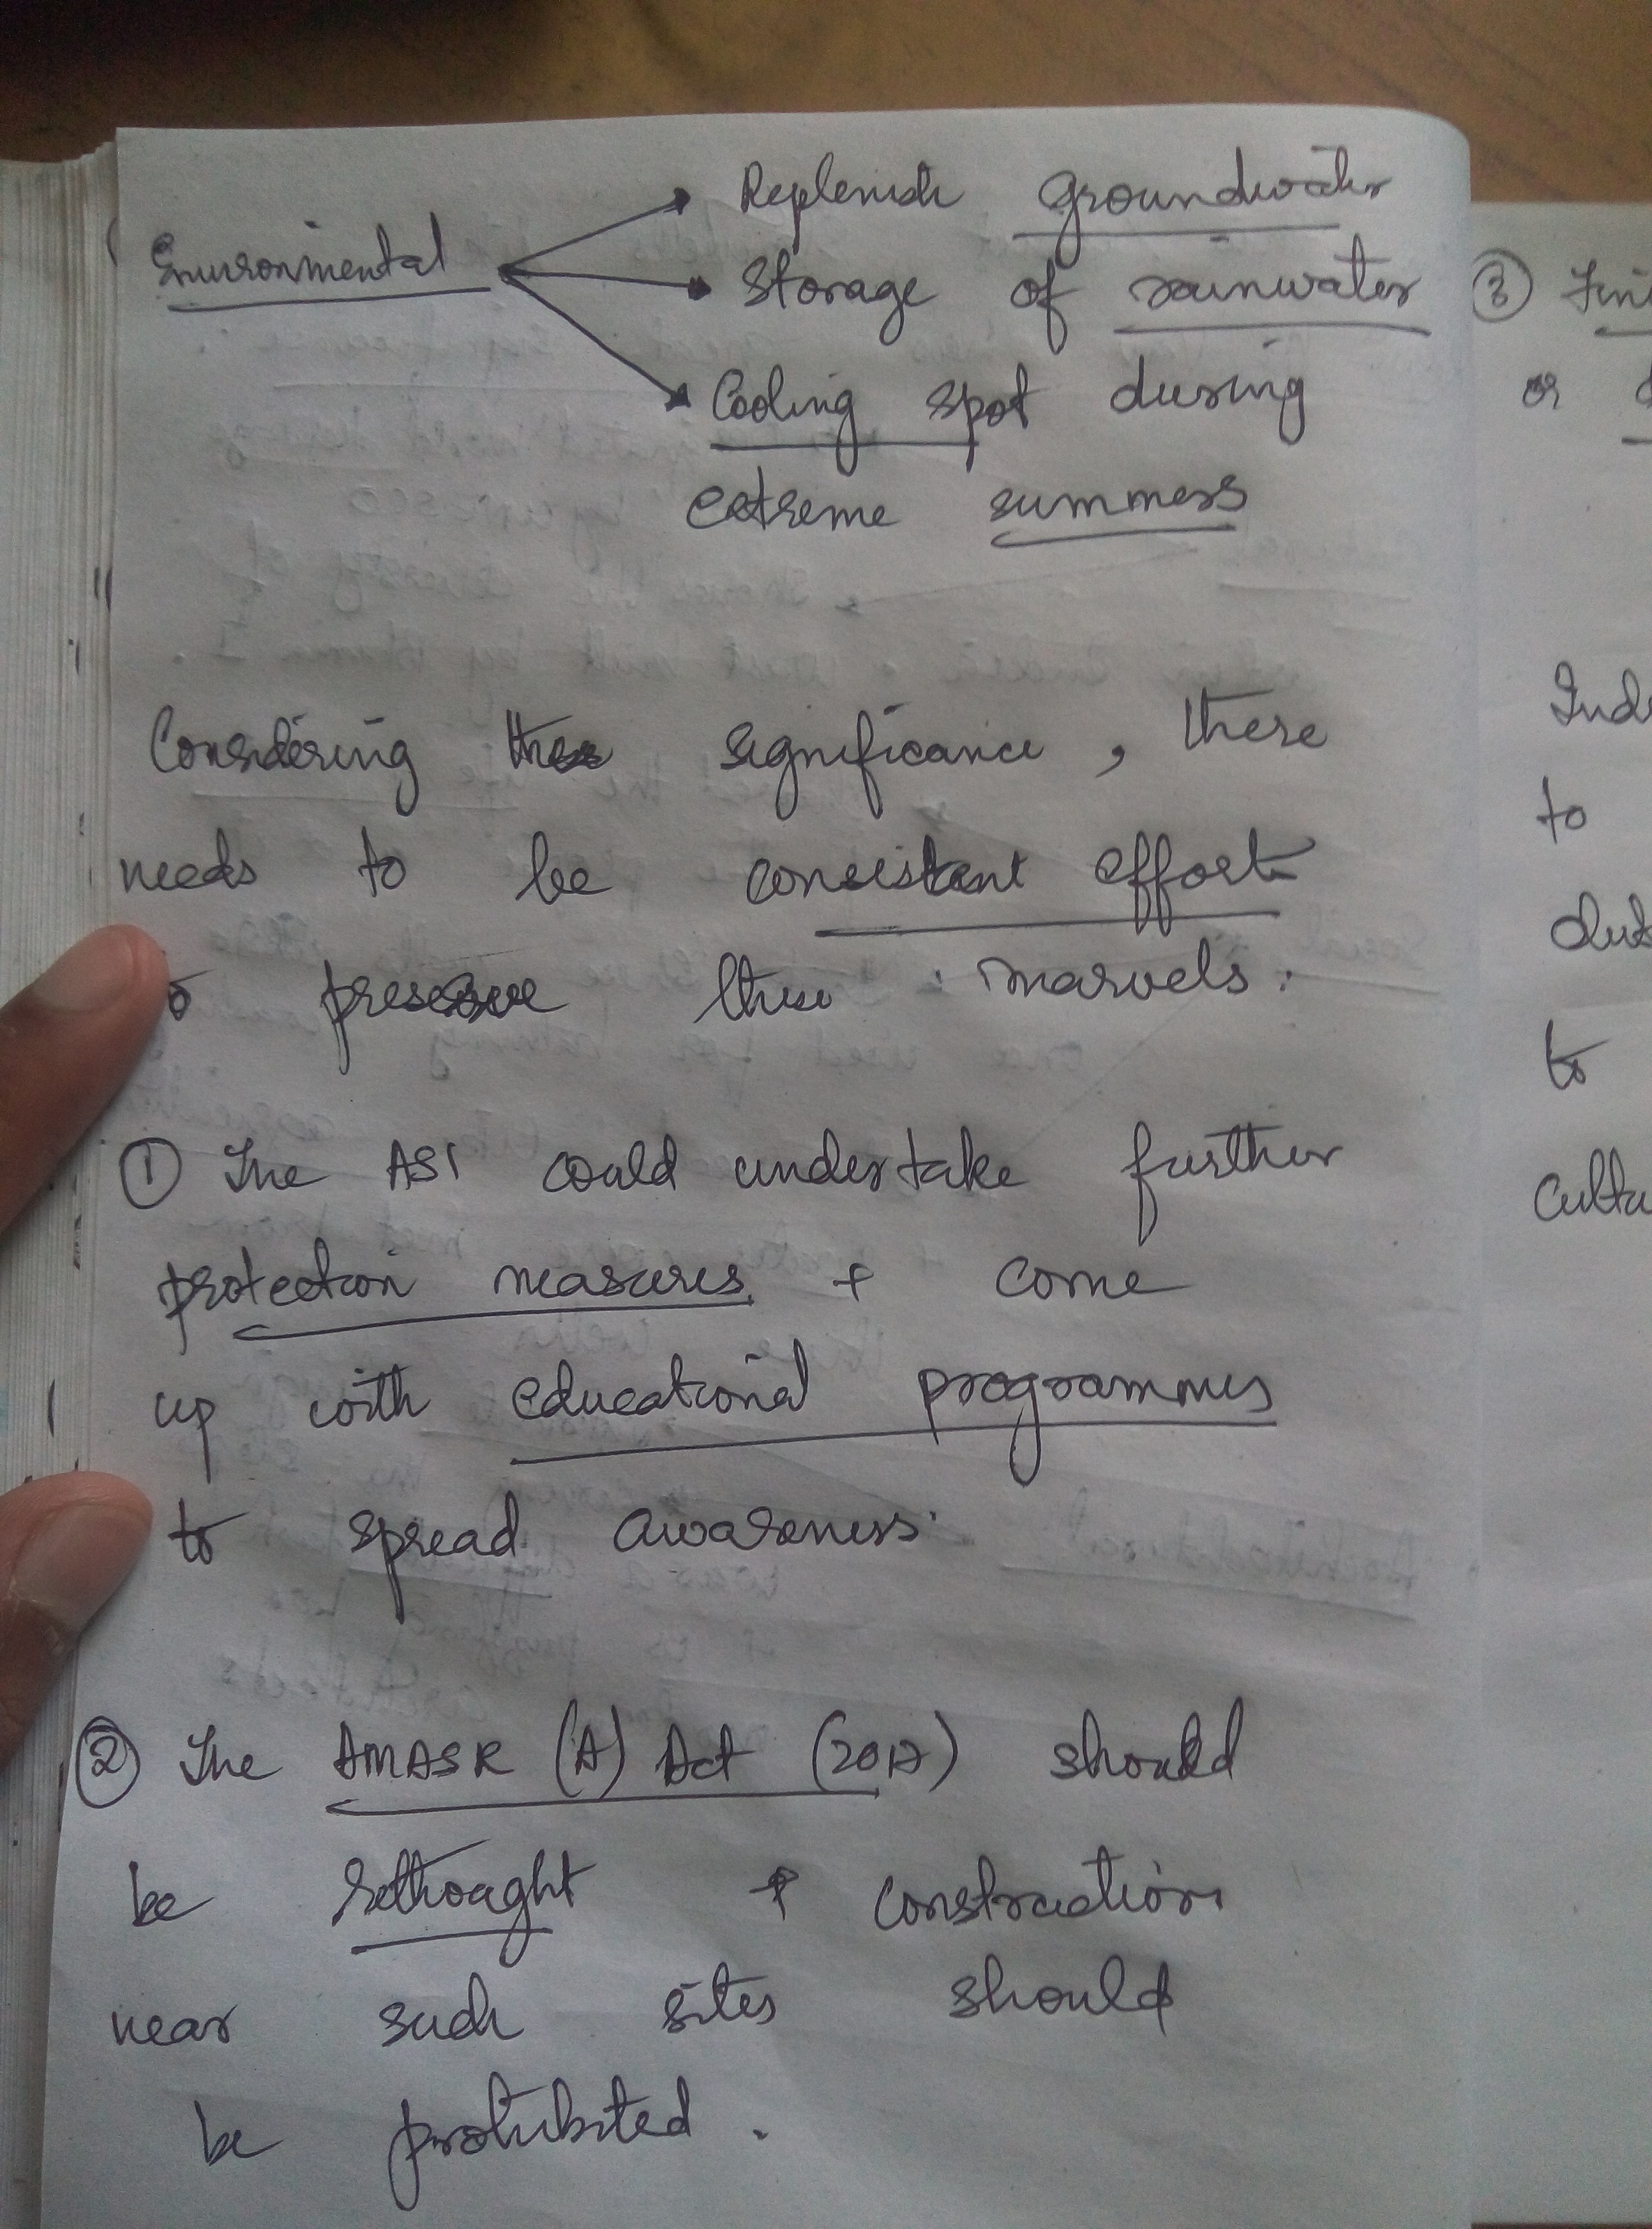 Environmental
Replenish groundwater
Storage of rainwater
Cooling spot during
extreme summers
Considering the significance, there
needs to be consistent effort
to preserve these marvels.
① The ASI could undertake further
protection measures + come
up with educational programmes
to spread awareness.
② The AMASR (A) Act (2017) should
be rethought + construction
near such sites should
be prohibited.
③
or
to
to